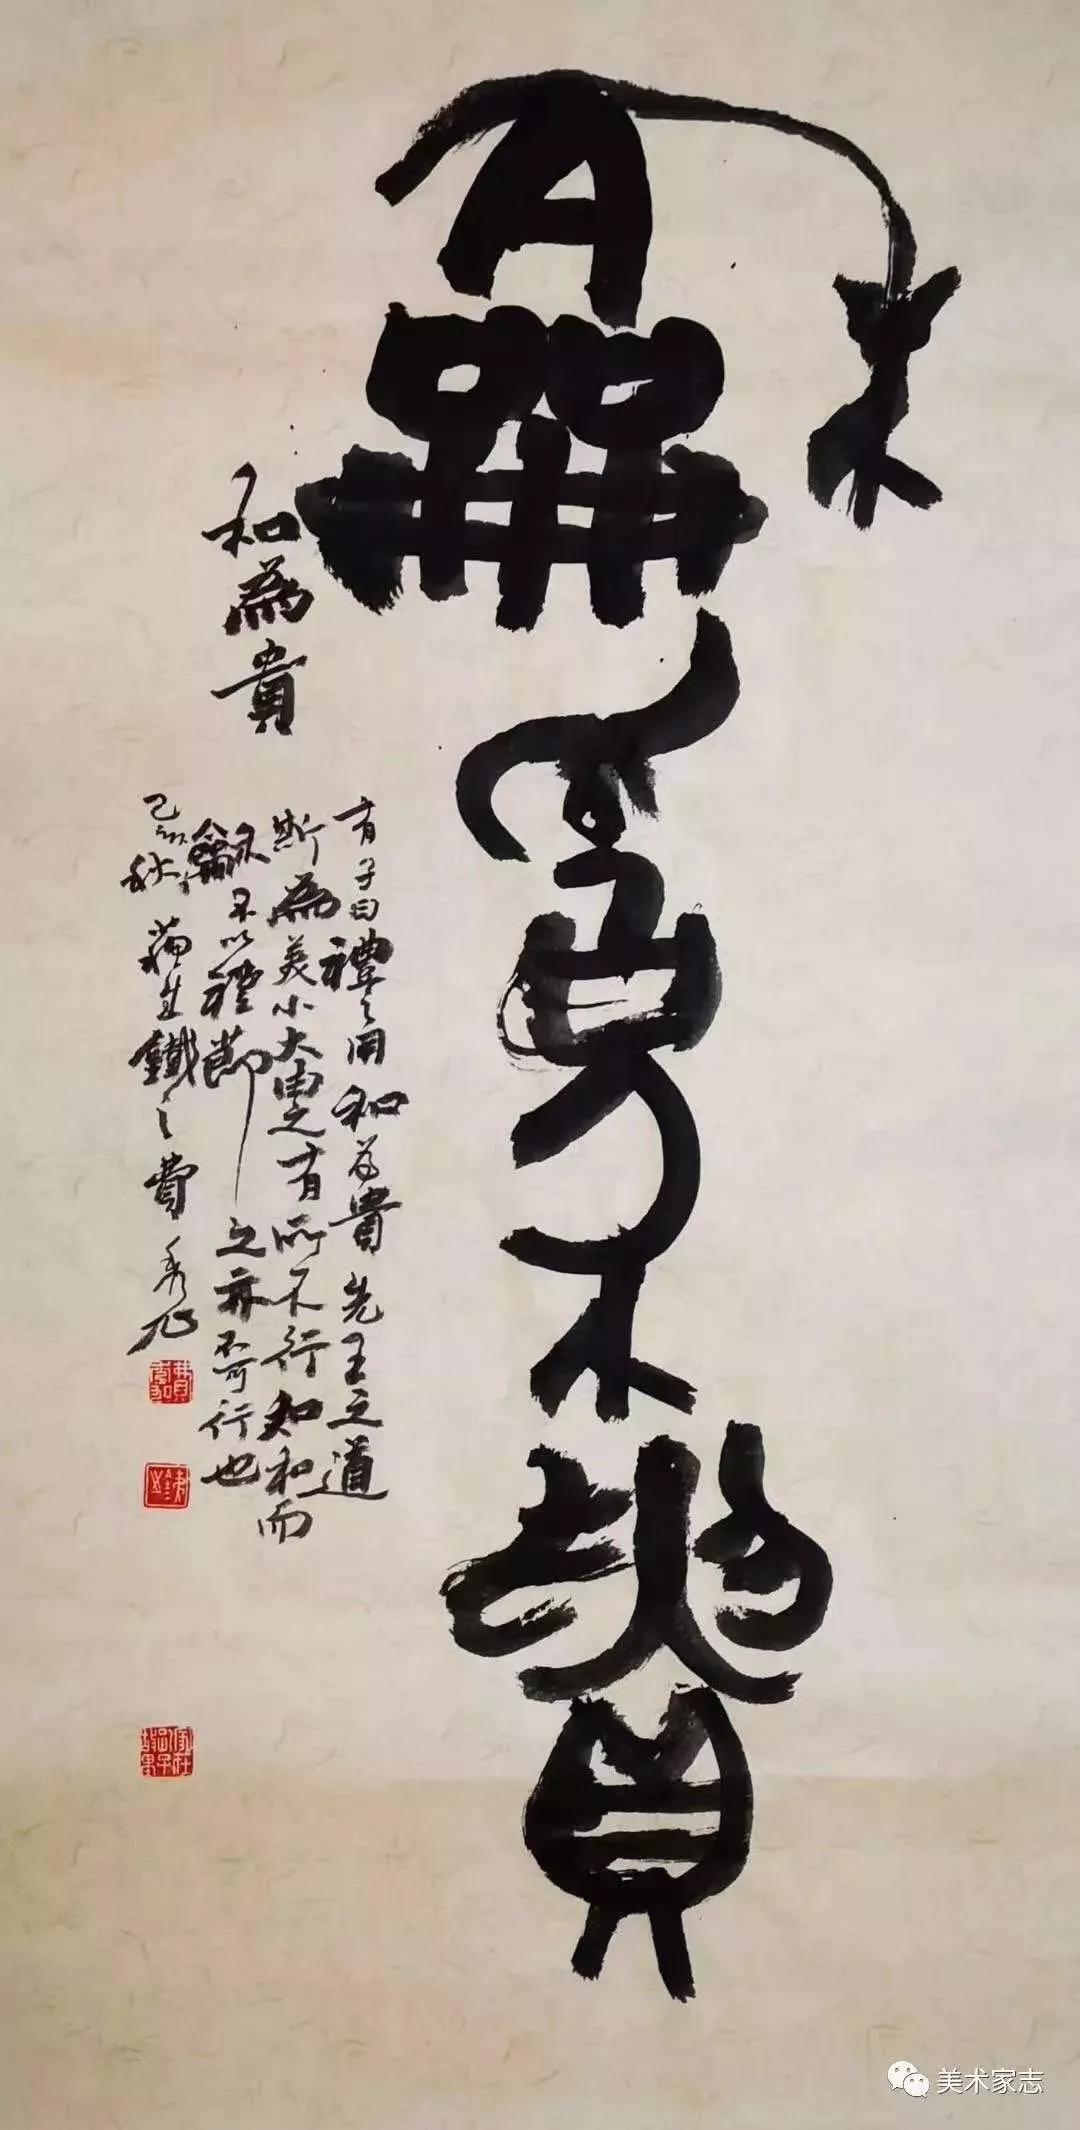 龢為貴
和為貴
有子曰禮之用和为貴先王之道
斯為美小大由之有所不行知和而
龢不以禮節之亦不可行也
己亥秋
美术家志